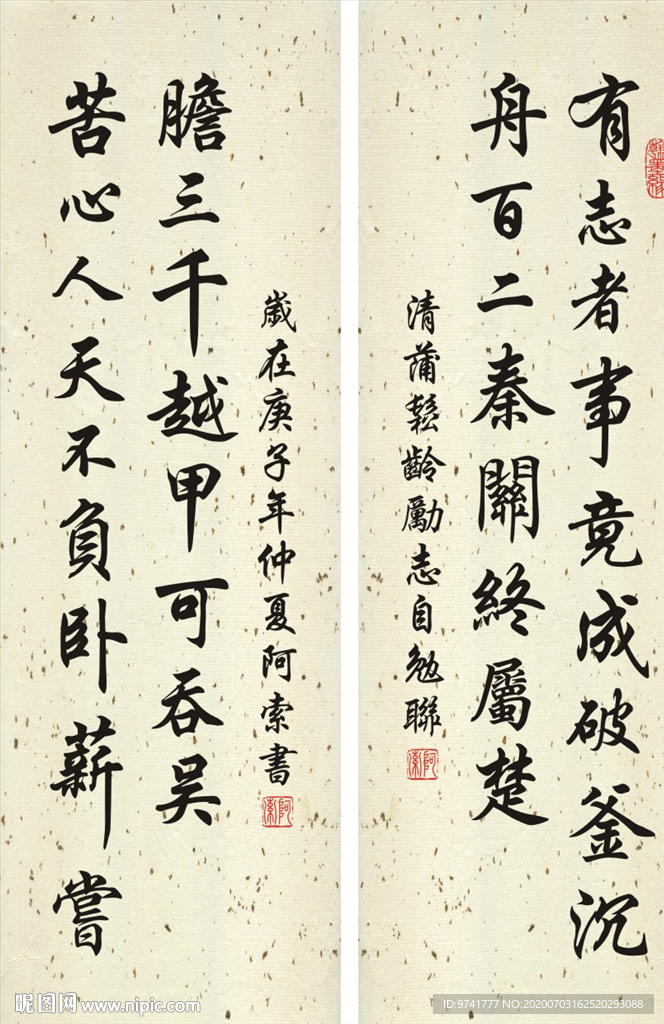 有志者事竟成破釜沉
舟百二秦關終屬楚
清蒲鬆齡勵志自勉聯
阿索
苦心人天不負卧薪嘗
膽三千越甲可吞吴
歲在庚子年仲夏阿索書
阿索
昵图网 www.nipic.com
ID:9741777 NO:20200703162520293088